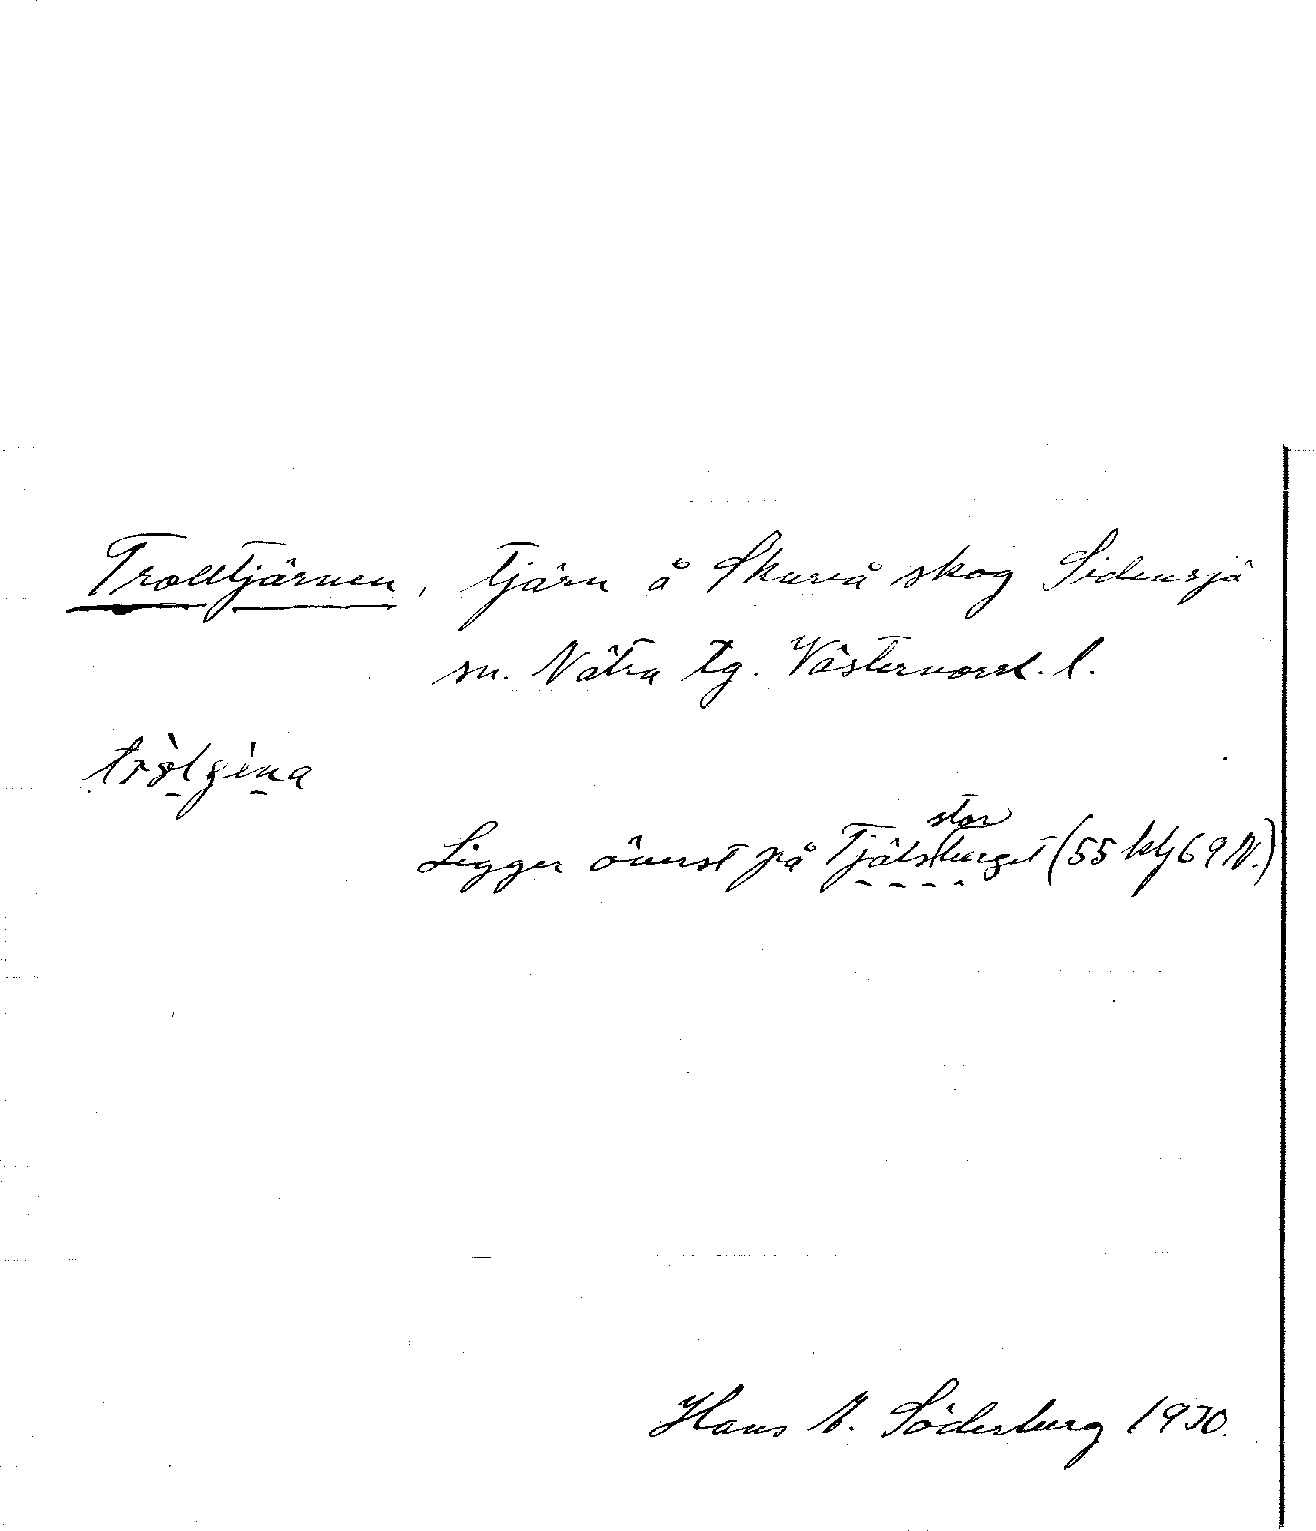 Trolltjärnen, tjärn å Skureå skog Sidensjö
sn. Nätra tg. Västernorrl. l.
Ligger överst på Tjälsstorberget (55 kbj 69 N.)
Hans N. Söderberg 1930.